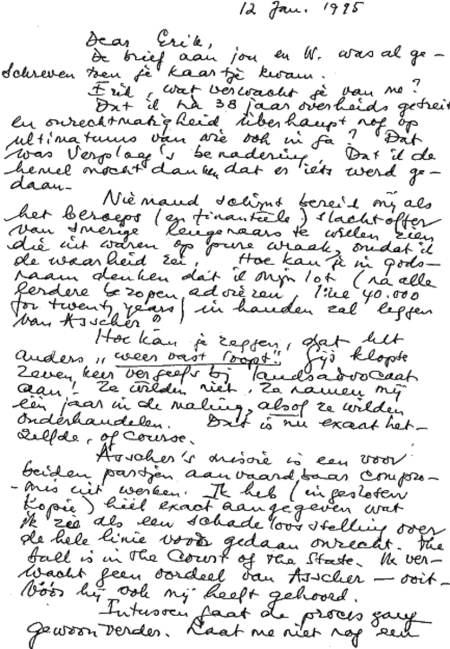 12 Jan. 1995
Dear Erik,
De brief aan jou en W. was al ge-
schreven toen je kaartje kwam.
Erik, wat verwacht je van me?
Dat ik na 38 jaar overheids getreiter
en onrechtmatigheid überhaupt nog op
ultimatums van wie ook in ga? Dat
was Verploeg's benadering. Dat ik de
hemel mocht danken dat er iets werd ge-
daan.
Niemand schijnt bereid mij als
het beroeps (en financiële) slachtoffer
van smerige leugenaars te willen zien
die uit waren op pure wraak, omdat ik
de waarheid zei. Hoe kan je in gods-
naam denken dat ik mijn lot (na alle
eerdere bezopen adviezen, like 40.000
for twenty years) in handen zal leggen
van Asscher?
Hoe kan je zeggen, dat het
anders "weer vast loopt". Jij klopte
zeven keer vergeefs bij landsadvocaat
aan. Ze wilden niet. Ze namen mij
één jaar in de maling, alsof ze wilden
onderhandelen. Dit is nu exact het-
zelfde, of course.
Asscher's missie is een voor
beiden partijen aanvaardbaar compro-
mis uit werken. Ik heb (ingesloten
kopie) héél exact aangegeven wat
ik zie als een schadeloosstelling over
de hele linie voor gedaan onrecht. The
ball is in the Court of the State. Ik ver-
wacht geen oordeel van Asscher — ooit -
vóór hij ook mij heeft gehoord.
Intussen gaat de procesgang
gewoon verder. Laat me niet nog een